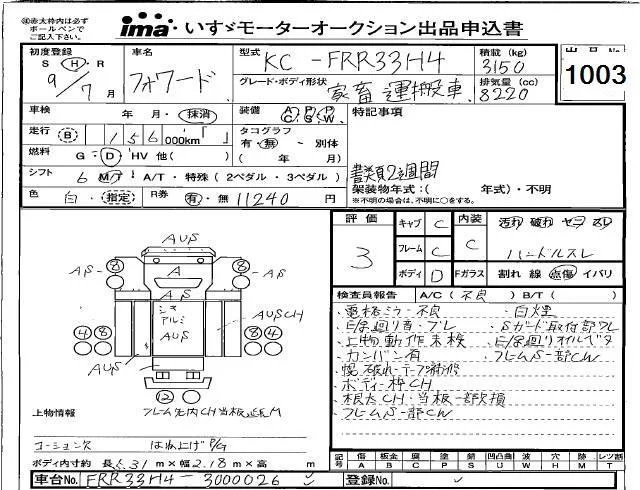 ※赤太枠内は必ず
ボールペンで
ご記入下さい。
ima いすゞモーターオークション出品申込書
初度登録 車名 型式 KC-FRR33H4 積載(kg) 3150 出品No. 1003
S H・R
9/7月 フォワード グレード・ボディ形状 家畜運搬車 排気量(cc) 8220
車検 年 月・抹消 装備 AC PS PW 特記事項
走行 B 156 000km「 」 タコグラフ
有・無 - 別体
燃料 G・D・HV 他( ) ( 年 月) 書類2週間
シフト 6 MT・A/T・特殊(2ペダル・3ペダル) 架装物年式:( 年式)・不明
※不明の場合は、不明に○をする。
色 白・指定 R券 有・無 11240円
評価 3 キャブ C 内装 C 汚れ 破れ ヤニ スレ
フレーム C ハンドルスレ
ボディ D Fガラス 割れ 線 点傷 イバリ
検査員報告 A/C(不良) B/T( )
・電格ミラー不良 ・白煙
・E/G廻り音・ブレ ・Sガード取付部ワレ
・上物動作未検 ・E/G廻りオイルベタ
・カンバン有 ・フレームS一部CW
・幌破れ・テープ補修
・ボディー枠CH
・根太CH・当板一部欠損
・フレームS一部CW
AUS
8 8
AS AS
A
AS
シマ
アルミ
AUS
AUS
AUSCH
4 8 8 4
2
上物情報 フレーム先内CH当板
コーションラ欠 はね上げP/G
ボディ内寸約 長5.31m×幅2.18m×高 m
記号 傷 A 板金 B 腐 C 塗 P 凹 U 錆 S 凹凸曲 U W 穴 H 跡 M レツ割 T
車台No. FRR33H4-3000026 登録No.